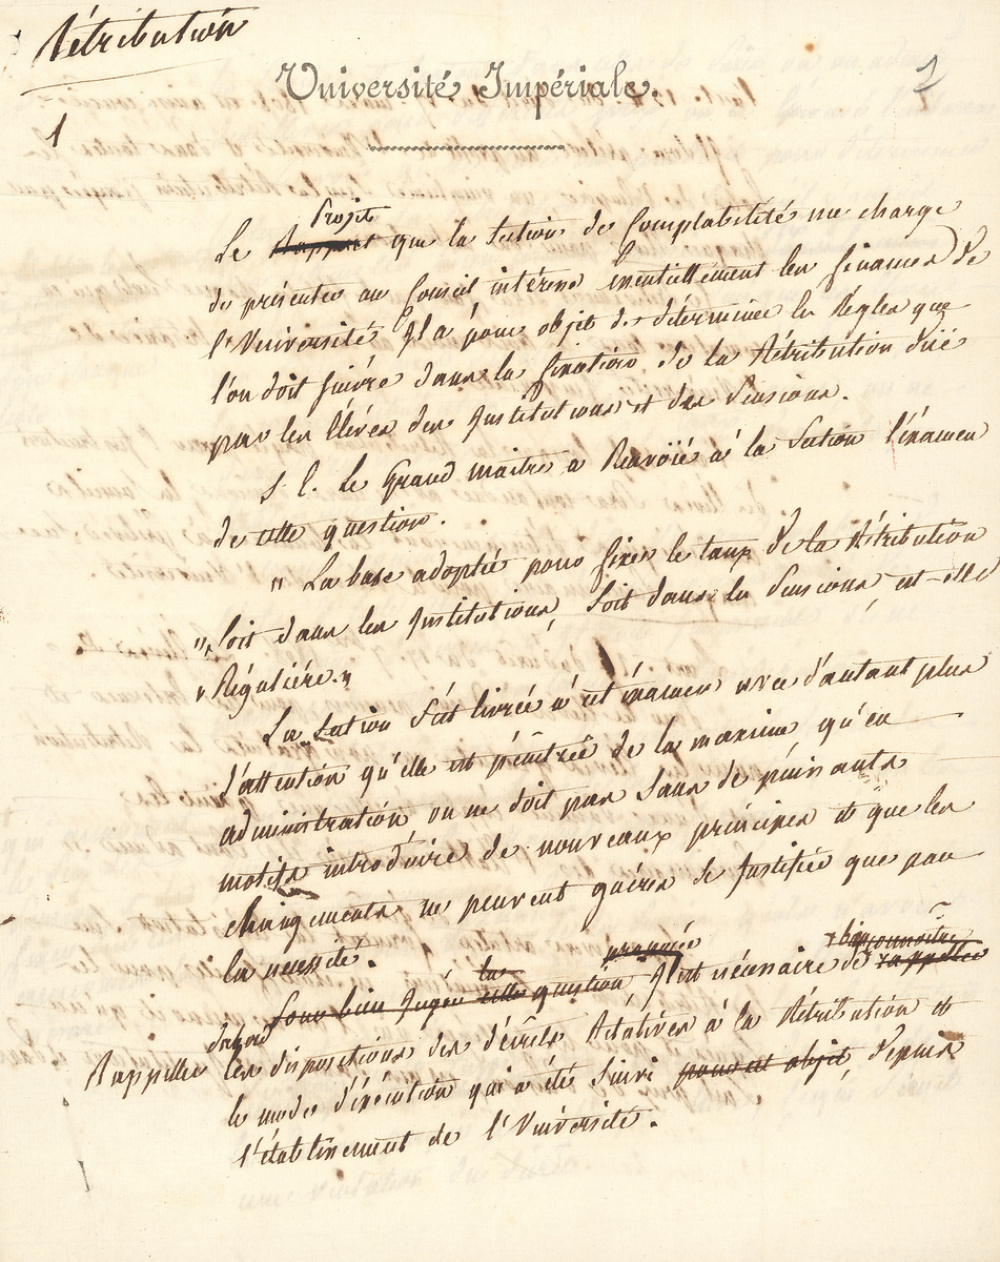 Rétribution
Université Impériale.
1
1
Projet
Le Rapport que la Section de Comptabilité me charge
de présenter au Conseil intéresse essentiellement les finances de
l'Université Il a pour objet de déterminer les Règles que
l'on doit suivre dans la fixation de la Rétribution düe
par les Elèves des Institutions et des Pensions.
S. E. Le Grand maitre a Renvoïé à la Section l'éxamen
de cette question.
" La base adoptée pour fixer le taux de la Rétribution
" Soit dans les Institutions, Soit dans les Pensions, est-elle
" Régulière. "
La Section s'est livrée à cet éxamen avec d'autant plus
d'attention qu'elle est pénétrée de la maxime qu'en
administration on ne doit pas sans de puissants
motifs introduire de nouveaux principes et que les
changements ne peuvent guères se Justifier que par
la nécessité.
Pour bien Juger cette la question proposée Il est nécessaire de rappeller bien connoitre
Rappeller d'abord les dispositions des décrets Rélatives à la Rétribution et
le mode d'éxécution qui a été Suivi pour cet objet, depuis
l'établissement de l'Université.